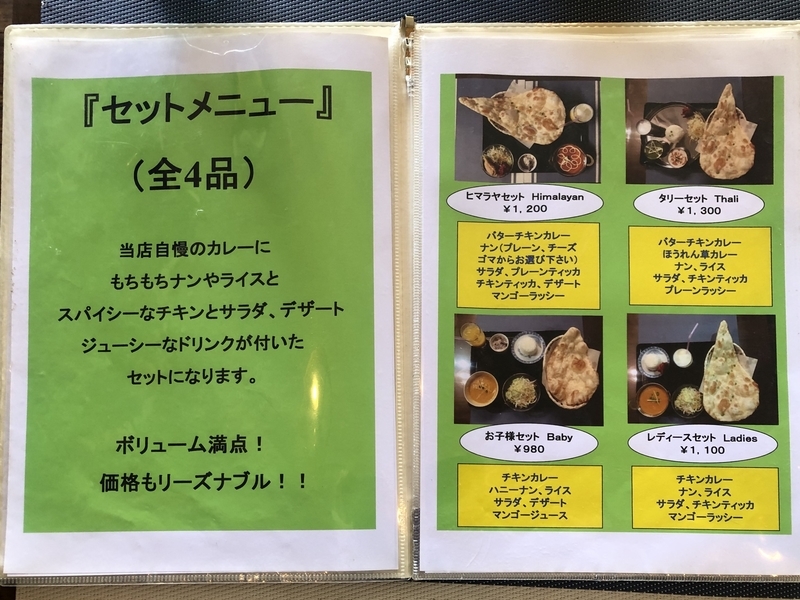 『セットメニュー』
（全4品）
当店自慢のカレーに
もちもちナンやライスと
スパイシーなチキンとサラダ、デザート
ジューシーなドリンクが付いた
セットになります。
ボリューム満点！
価格もリーズナブル！！
ヒマラヤセット Himalayan
￥1，200
バターチキンカレー
ナン（プレーン、チーズ
ゴマからお選び下さい）
サラダ、プレーンティッカ
チキンティッカ、デザート
マンゴーラッシー
タリーセット Thali
￥1，300
バターチキンカレー
ほうれん草カレー
ナン、ライス
サラダ、チキンティッカ
プレーンラッシー
お子様セット Baby
￥980
チキンカレー
ハニーナン、ライス
サラダ、デザート
マンゴージュース
レディースセット Ladies
￥1，100
チキンカレー
ナン、ライス
サラダ、チキンティッカ
マンゴーラッシー